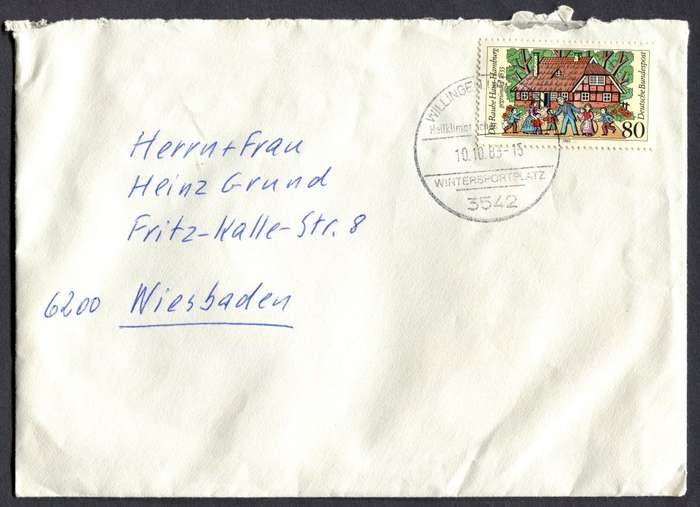 Das Rauhe Haus Hamburg
gegründet 1833
Deutsche Bundespost
80
Heilklimat
10.10.83-15
WINTERSPORTPLATZ
3542
Herrn+Frau
Heinz Grund
Fritz-Kalle-Str. 8
6200 Wiesbaden